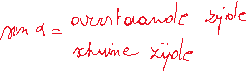 sin α = overstaande zijde
schuine zijde